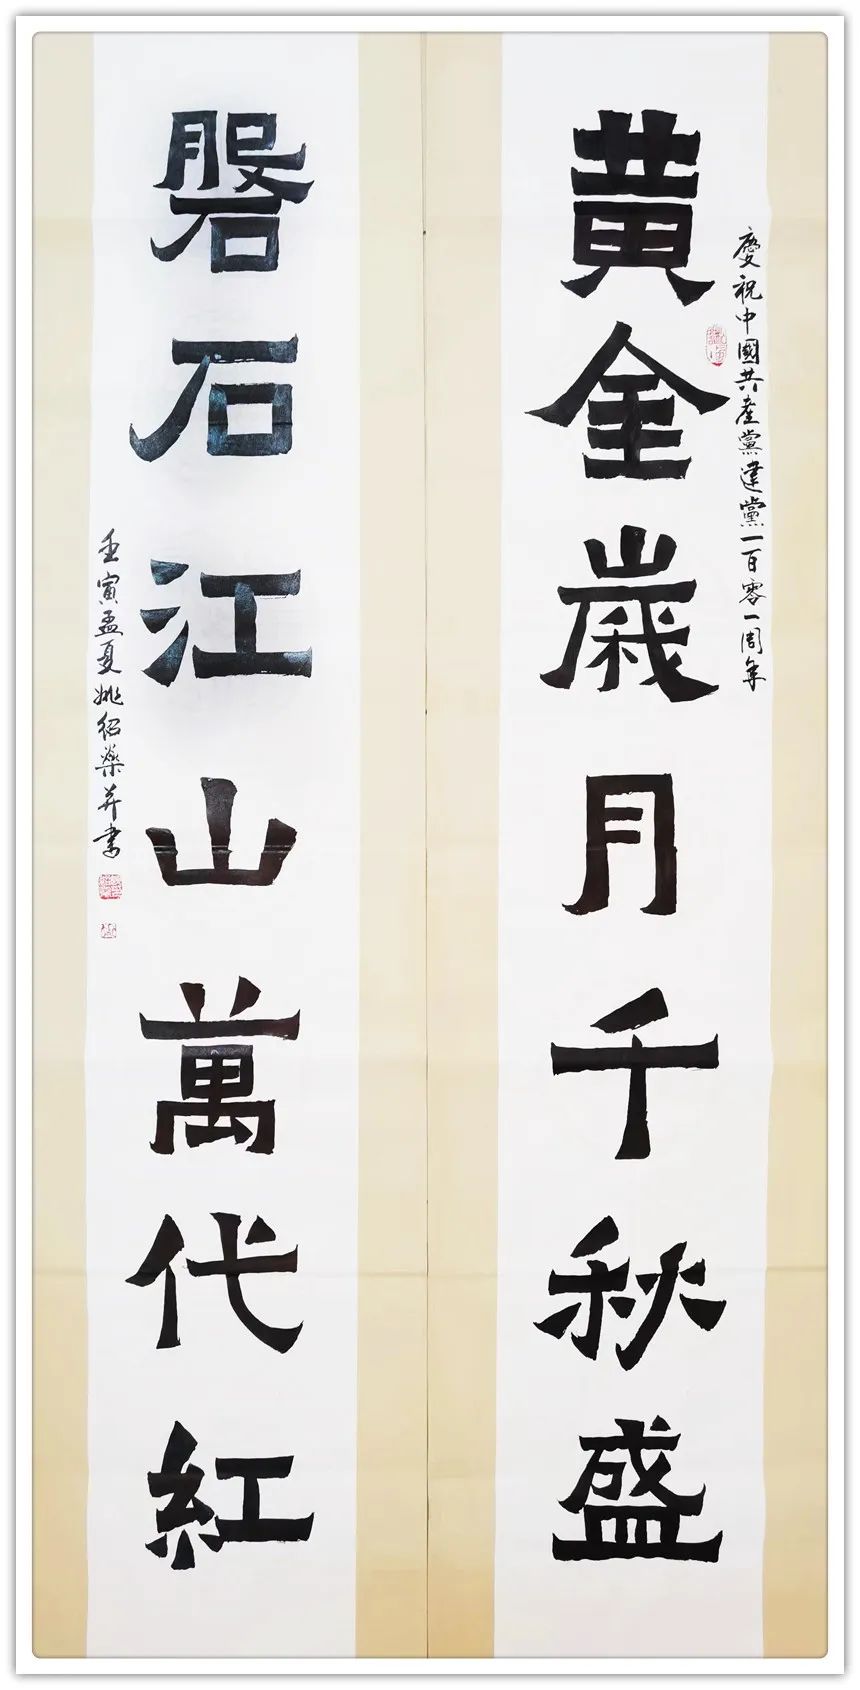 慶祝中國共產黨建黨一百零一周年
黃金歲月千秋盛
磐石江山萬代紅
壬寅孟夏姚紹燊并書